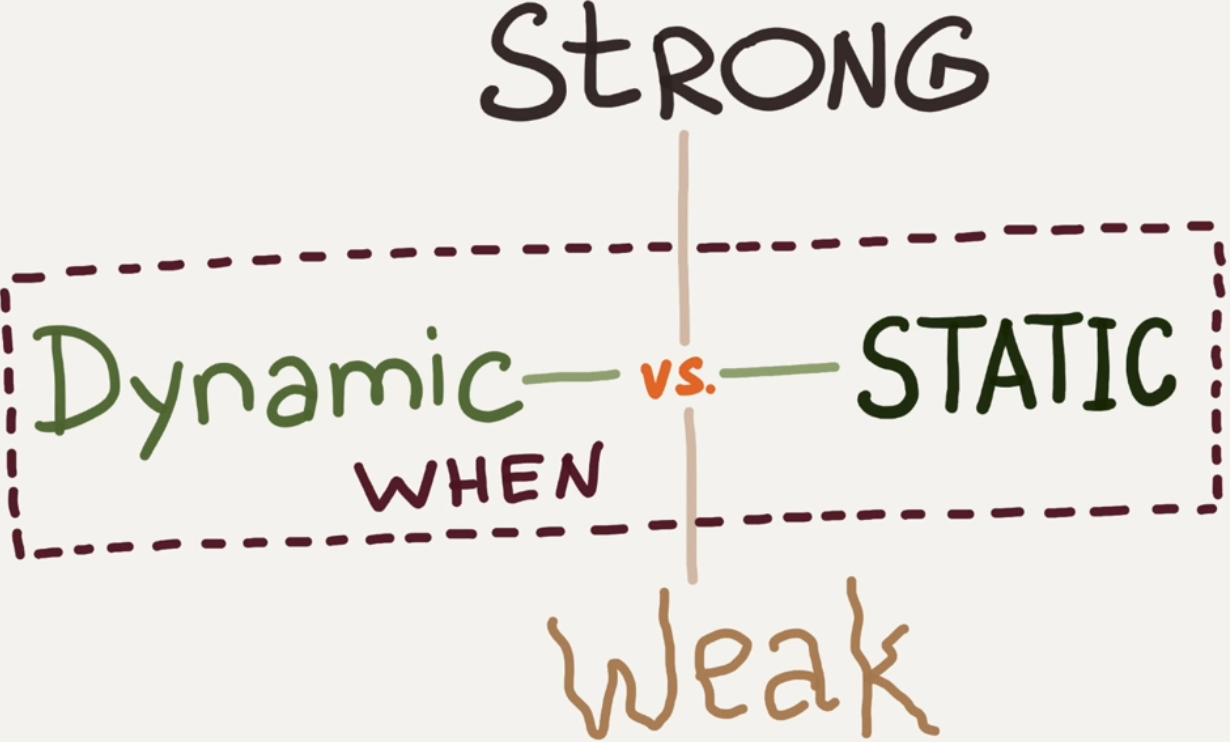 StRONG
Dynamic vs. STATIC
WHEN
Weak